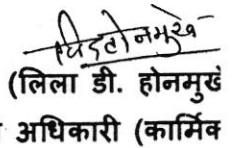 (लिला डी. होनमुखे
अधिकारी (कार्मिक